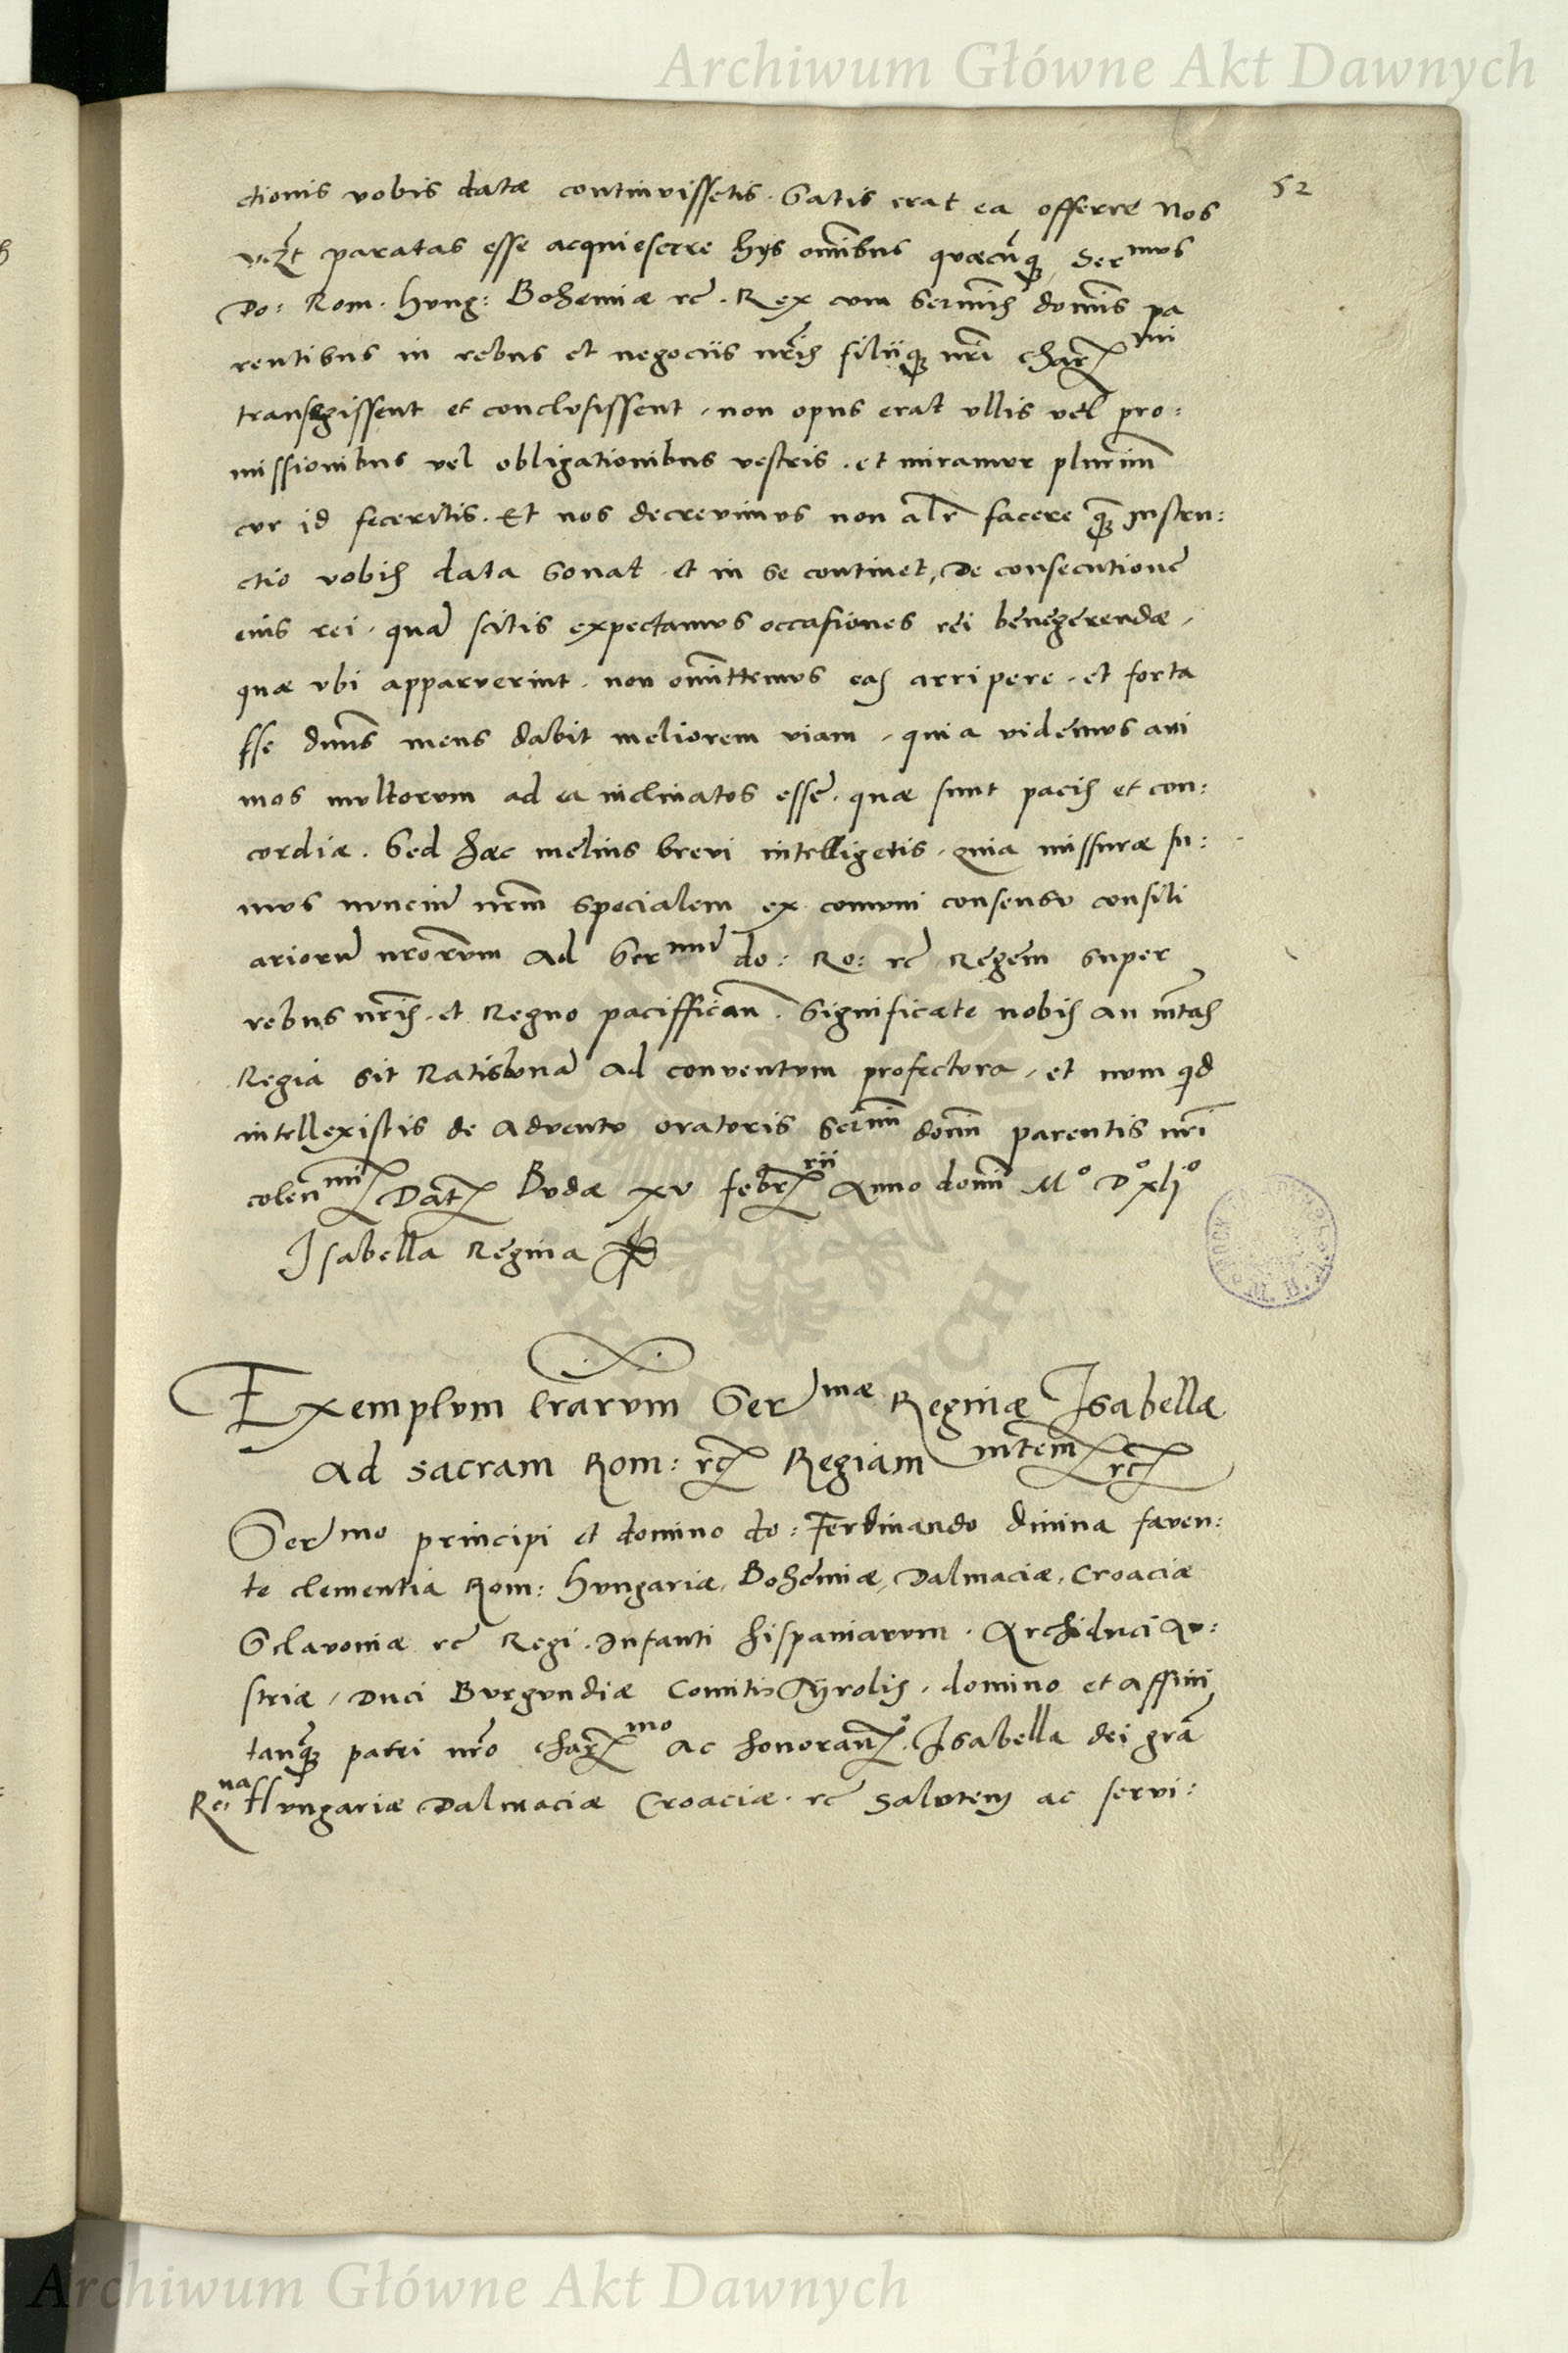 Archiwum Główne Akt Dawnych
52
ctionis vobis datæ continuissetis. Satis erat ea offerre Nos
vizt paratas esse acquiescere hijs omibus quæcuq Sermus
Do: Rom. Hung: Bohemiæ rc. Rex cum sermis domis pa
rentibus in rebus et negociis nris filiique nri charmi
transegissent et conclusissent, non opus erat ullis vel pro:
missionibus vel obligationibus vestris. et miramur plurimu
cur id feceritis. Et nos decrevimus non alr facere q Instru:
ctio vobis data sonat et in se continet, De consecutione
eius rei, qua scitis expectamus occasiones rei benegerendæ,
quæ ubi apparverint, non omittemus eas arripere, et forta
sse diuns mens dabit meliorem viam, quia videmus ani
mos multorum ad ea inclinatos esse, quæ sunt pacis et con:
cordiæ. Sed hæc melius brevi intelligetis, quia missuræ su:
mus nunciu nrm specialem ex comuni consensu consili
arioru nrorum Ad Sermu do: Ro: rc Regem super
rebus nris et Regno paciffican. Significate nobis an mtas
Regia sit Ratisbona Ad conventum profectura, et num qd
intellexistis de Adventu oratoris sermi domi parentis nri
colenmi Dat Budæ xv febrrii Anno domi Mo Do xljo
Isabella Regina
Exemplum lrarum Sermæ Reginæ Isabellæ
Ad sacram Rom: rc Regiam mtem rc
Sermo principi et domino do: Ferdinando divina faven:
te clementia Rom: Hungariæ, Bohemiæ, Dalmaciæ, Croaciæ
Sclavoniæ rc Regi. Infanti hispaniarum. Archiduci Au:
striæ, Duci Burgundiæ Comitis Tyrolis, domino et Affini
tanq patri nro charmo Ac honorano. Isabella dei gra
Rena Hungariæ Dalmaciæ Croaciæ. rc Salutem ac servi:
Archiwum Główne Akt Dawnych